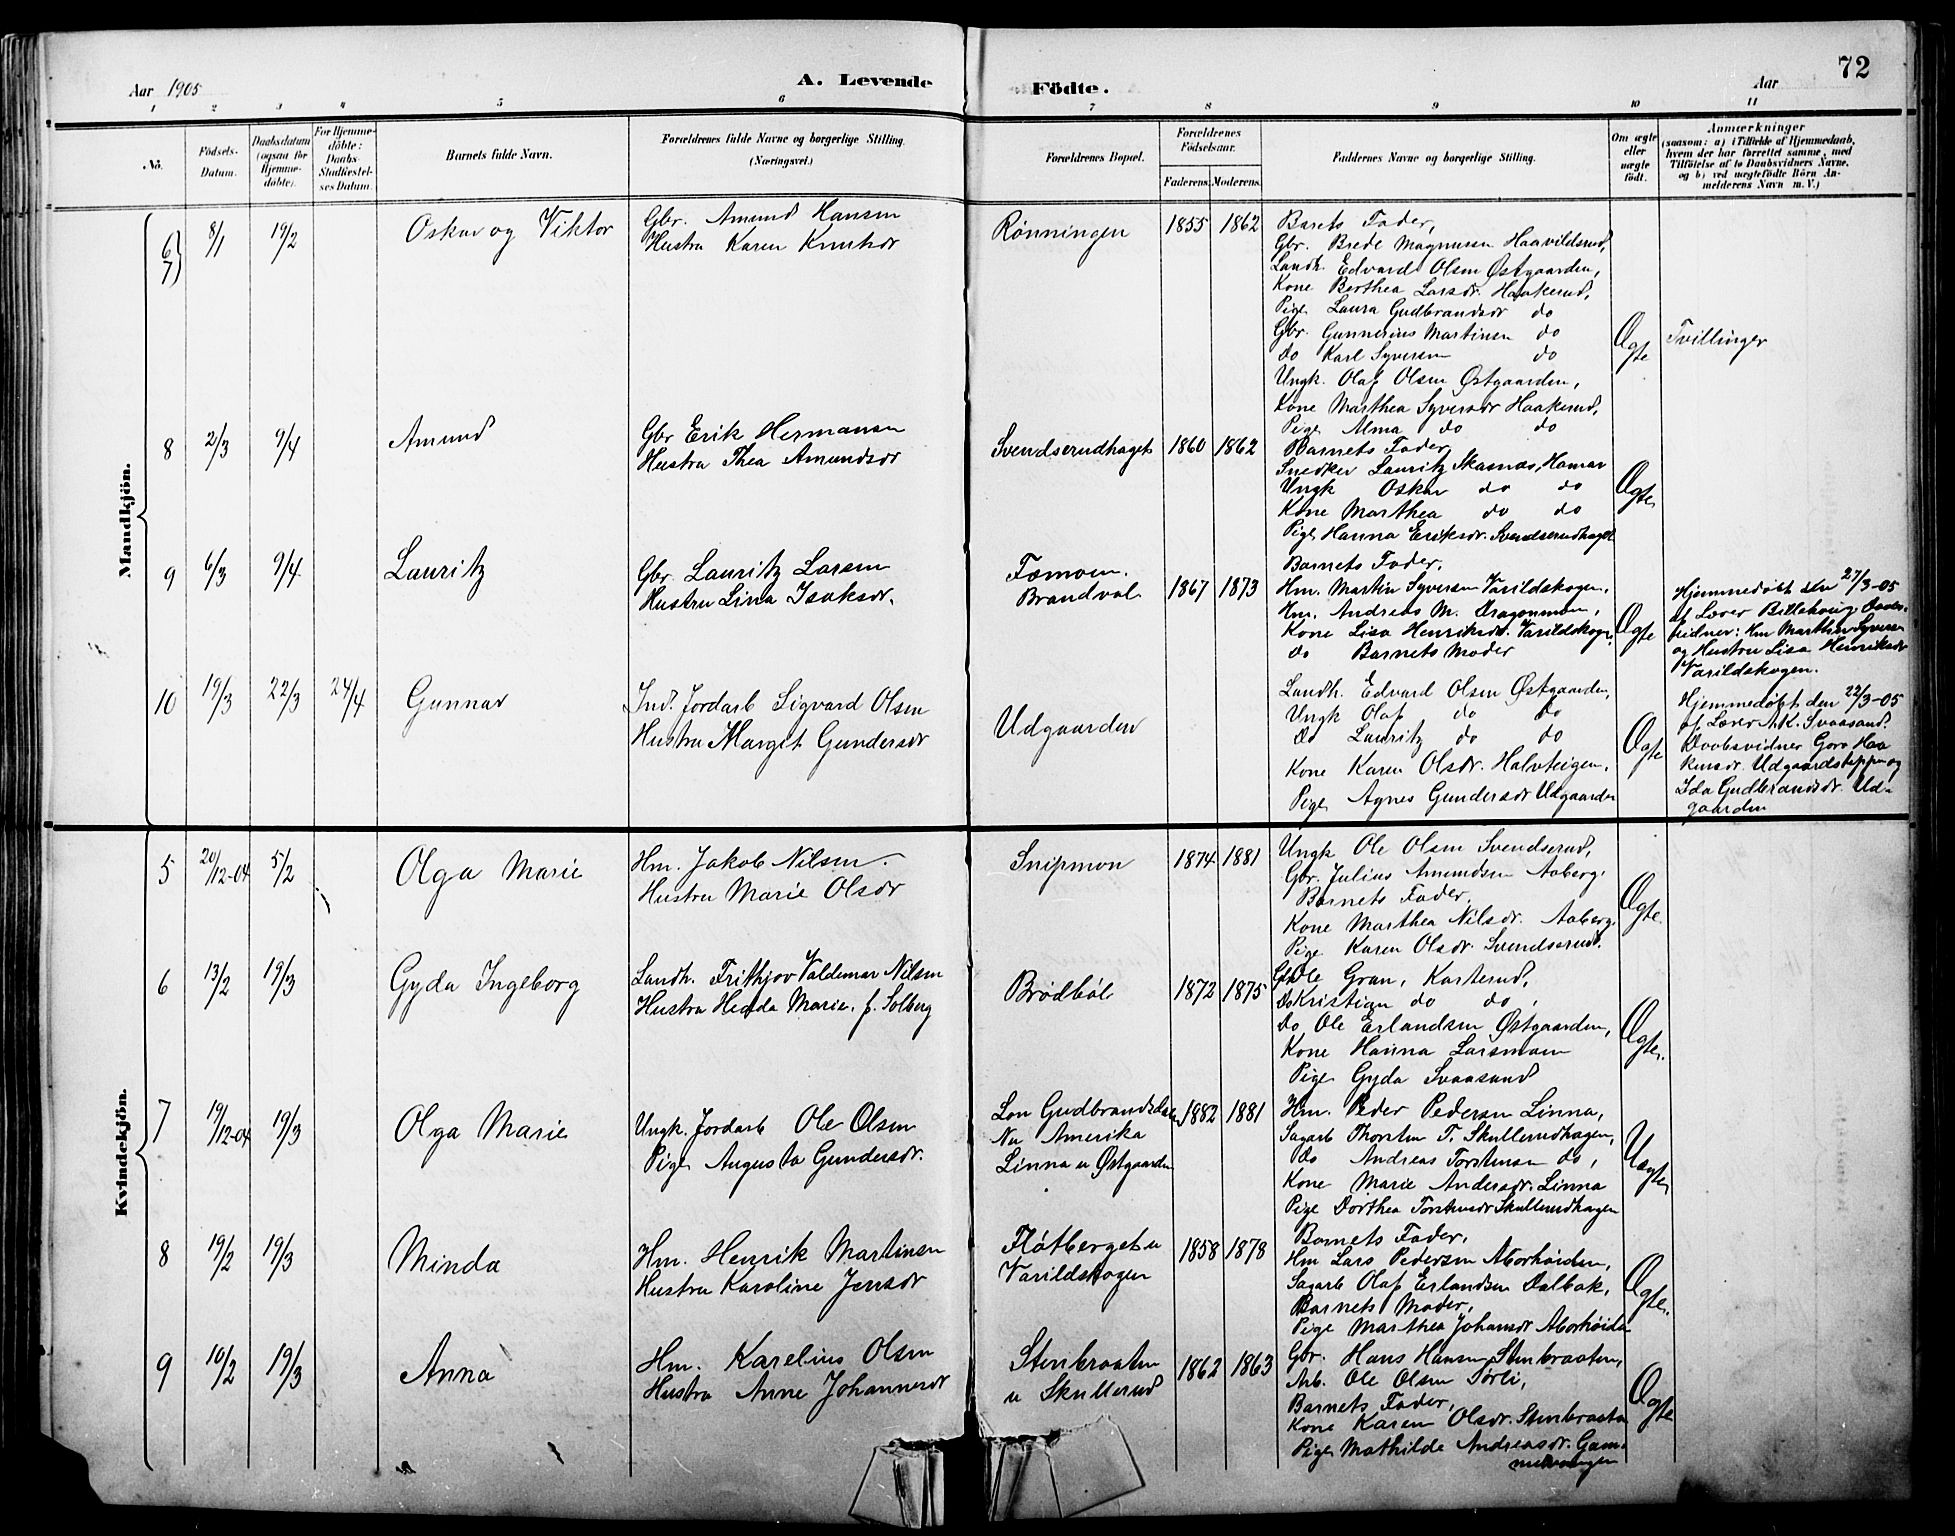 72
Aar 1905
A. Levende
Födte.
Aar
1 2 3 4 5 6 7 8 9 10 11
No.
Födsels-
Datum.
Daabsdatum
(ogsaa for
Hjemme-
døbte).
For Hjemme-
döbte:
Daabs-
Stadfæstel-
ses Datum.
Barnets fulde Navn.
Forældrenes fulde Navne og borgerlige Stilling.
(Næringsvei.)
Forældrenes Bopæl.
Forældrenes
Födselsaar.
Faderens. Moderens.
Faddernes Navne og borgerlige Stilling.
Om ægte
eller
uægte
födt.
Anmærkninger
(saasom: a) i Tilfælde af Hjemmedaab,
hvem der har forrettet samme, med
Tilföielse af to Daabsvidners Navne,
og b) ved uægtefödte Börn An-
melderens Navn m. V.)
Mandkjön.
6
7
8/1
19/2
Oskar og Viktor
Gbr. Amund Hansen
Hustru Karen Knutsdr
Rønningen
1855
1862
Barets Fader,
Gbr. Brede Magnusen Haavildsrud,
Landh. Edvard Olsen Østgaarden,
Kone Berthea Larsdr. Haakerud,
Pige Laura Gudbrandsdr do
Gbr. Gunnerius Martinsen do
do Karl Syversen do
Ungk. Olaf Olsen Østgaarden,
Kone Marthea Syversdr Haakerud,
Pige Alma do do
Ægte
Tvillinger
8
2/3
9/4
Amund
Gbr Erik Hermansen
Hustru Thea Amundsdr
Svendserudhaget
1860
1862
Barnets Fader,
Snedker Lauritz Skasnæs, Hamar
Ungk Oskar do do
Kone Marthea do do
Pige Hanna Eriksdr. Svendserudhaget
Ægte
9
6/3
9/4
Lauritz
Gbr. Lauritz Larsen
Hustru Lina Isaksdr.
Fæmoen.
Brandval
1867
1873
Barnets Fader,
Hm. Martin Syversen Varildskogen,
Hm. Andreas M. Dragonmoen,
Kone Lisa Henriksdr. Varildskogen,
do Barnets Moder
Ægte
Hjemmedøbt den 27/3-05
af Lærer Daabs-
vidner: Hm Marthin Syversen
og Hustru Lisa Henriksdr
Varildskogen.
10
19/3
22/3
24/4
Gunnar
Ind. Jordarb Sigvard Olsen
Hustru Margit Gundersdr
Udgaarden
Landh. Edvard Olsen Østgaarden,
Ungk Olaf do do
Do Lauritz do do
Kone Karen Olsdr. Halvteigen,
Pige Agnes Gundersdr Udgaarden
Ægte
Hjemmedøbt den 22/3-05
af Lærer A.K. Svaasand.
Daabsvidner Goro Haa
kensdr. Udgaardseppen og
Ida Gudbrandsdr. Ud-
gaarden
Kvindekjön.
5
20/12-04
5/2
Olga Marie
Hm. Jakob Nilsen.
Hustru Marie Olsdr
Snipmon
1874
1881
Ungk Ole Olsen Svendserud,
Gbr. Julius Amundsen Aaberg.
Barnets Fader,
Kone Marthea Nilsdr. Aaberg.
Pige Karen Olsdr. Svendserud.
Ægte.
6
13/2
19/3
Gyda Ingeborg
Landh. Frithjov Valdemar Nilsen
Hustru Hedda Marie, f. Solberg
Brødbøl
1872
1875
Gbr Ole Gran, Kasterud,
Do Kristian do do,
Do Ole Erlandsen Østgaarden,
Kone Hanna Larsmoen
Pige Gyda Svaasand
Ægte.
7
19/12-04
19/3
Olga Marie
Ungk. Jordarb Ole Olsen
Pige Augusta Gundersdr.
Lon Gudbrandsdalen
Nu Amerika
Linna u Østgaarden
1882
1881
Hm. Peder Pedersen Linna,
Sagarb Thorsten T. Skullerudhagen,
Do Andreas Torstensen do,
Kone Marie Andersdr. Linna
Pige Dorthea Torstensdr Skullerudhagen
Uægte
8
19/2
19/3
Minda
Hm. Henrik Martinsen
Hustru Karoline Jensdr
Fløtberget u
Varildskogen
1858
1878
Barnets Fader,
Hm Lars Pedersen Aborhøiden,
Sagarb Olaf Erlandsen Dalbak,
Barnets Moder,
Pige Marthea Johansdr Aborhøiden
Ægte.
9
10/2
19/3
Anna
Hm. Karelius Olsen
Hustru Anne Johannesdr
Stenbraaten
u Skullerud
1862
1863
Gbr. Hans Hansen Stenbraaten,
Arb. Ole Olsen Sørli,
Barnets Fader,
Kone Karen Olsdr. Stenbraaten
Pige Mathilde Andreasdr. Gam-
melvangen
Ægte